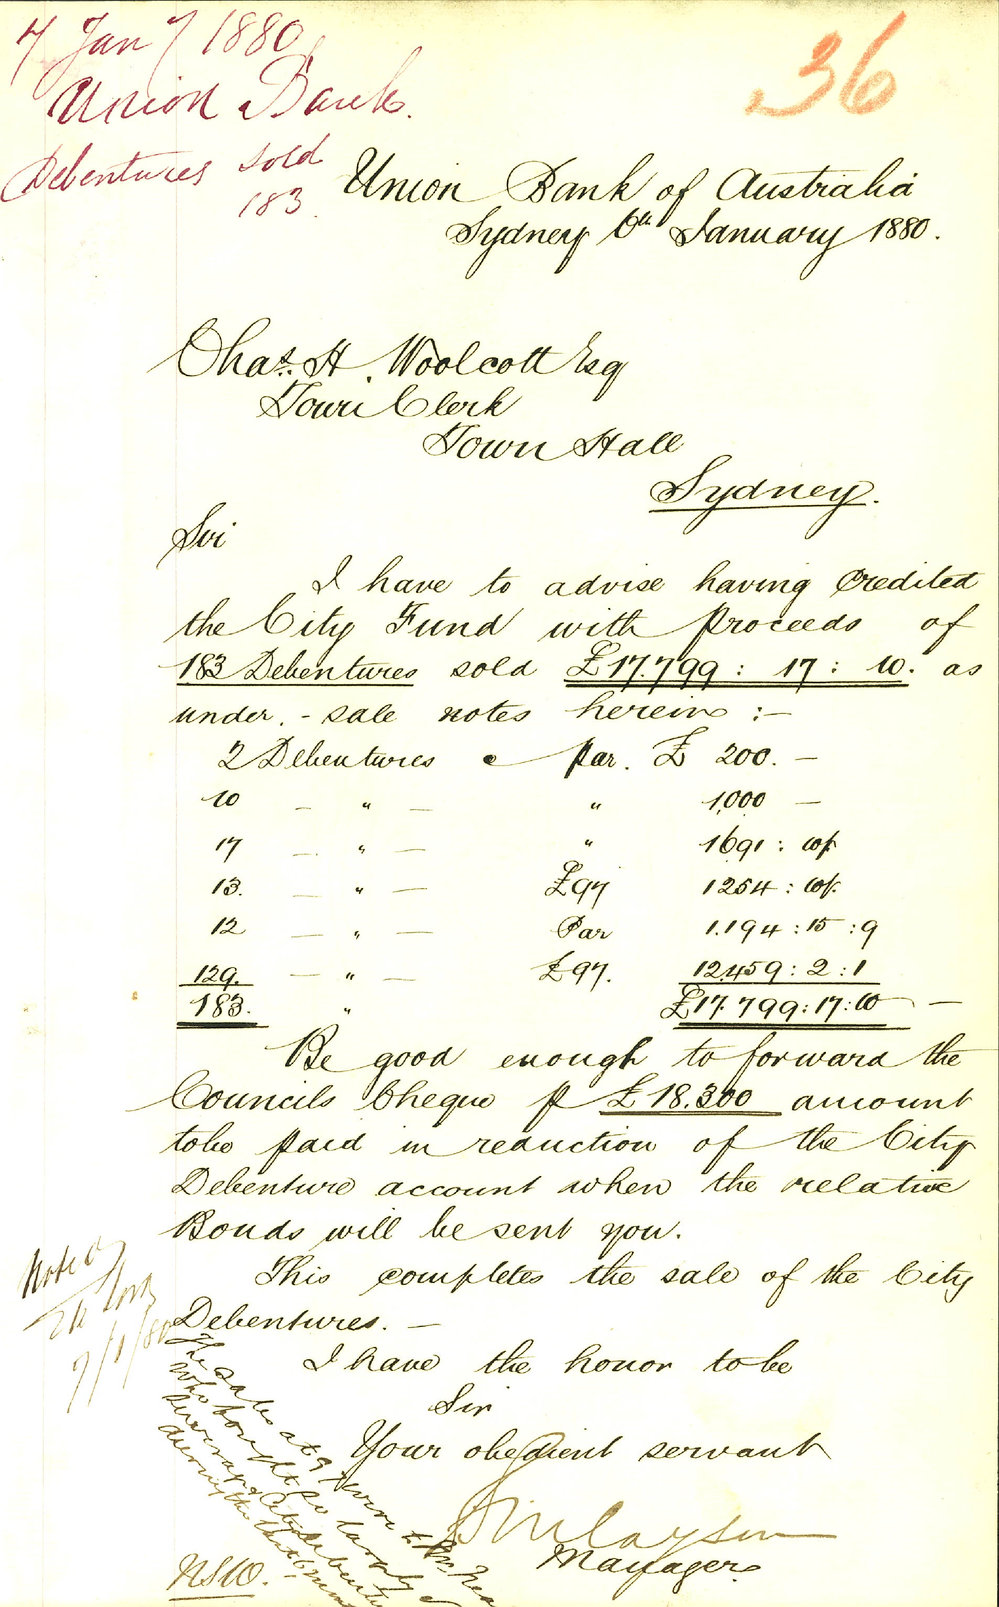 7 Jan 7 1880
Union Bank.
Debentures sold
183.
36
Union Bank of Australia
Sydney 6th January 1880.
Chas. H. Woolcott Esq
Town Clerk
Town Hall
Sydney.
Sir
I have to advise having credited
the City Fund with proceeds of
183 Debentures sold £17.799 : 17 : 10. as
under. - sale notes herein :-
2 Debentures @ par. £ 200. —
10 — " — " 1,000 —
17 — " — " 1691 :
13. — " — £97 1254 :
12 — " — Par 1.194 : 15 : 9
129. — " — £97. 12.459 : 2 : 1
183. " £17.799 : 17 : 10 —
Be good enough to forward the
Councils Cheque p £18.300 amount
to be paid in reduction of the City
Debenture account when the relative
Bonds will be sent you.
This completes the sale of the City
Debentures. —
I have the honor to be
Sir
Your obedient servant
Manager.
Noted
7/1/80
The sales at 97 were to
who bought so largely of
City Debentures
during the last